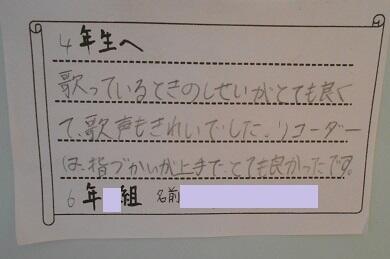 4年生へ
歌っているときのしせいがとても良く
て、歌声もきれいでした。リコーダー
は、指づかいが上手で、とても良かったです。
6年 組 名前